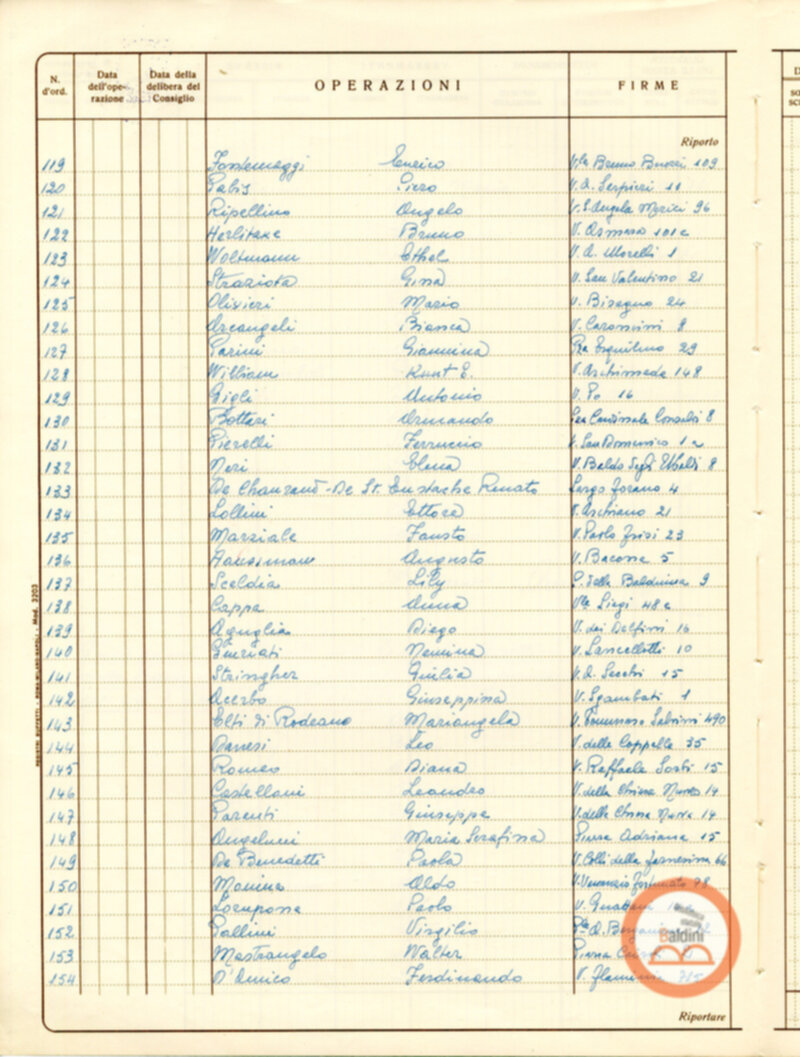 N. d'ord. Data dell'ope- razione Data della delibera del Consiglio OPERAZIONI FIRME
Riporto
119 Fontemaggi Enrico V.le Bruno Buozzi 109
120 Piero V. A. Serpieri 11
121 Ripellino Angelo V. S. Angela Merici 96
122 Herlitzke Bruno V. Asmara 101 c
123 Woltmann Ethel V. A. Morelli 1
124 Straziota Gina V. San Valentino 21
125 Olivieri Mario V. Bisagno 24
126 Arcangeli Bianca V. Carissimi 8
127 Parini Giannina Pza Esquilino 29
128 William Kurt E. V. Archimede 148
129 Gigli Antonio V. Po 16
130 Bottari Armando Pza Cardinale Consalvi 8
131 Pierelli Ferruccio V. San Domenico 1 a
132 Neri Elena V. Baldo degli Ubaldi 8
133 De Chaurand-De St. Eustache Renato Largo Forano 4
134 Lollini Ettore V. Aschiano 21
135 Marziale Fausto V. Paolo Frisi 23
136 Haussmann Augusto V. Bacone 5
137 Sceldia Lily P. della Balduina 9
138 Cappa Anna Vle Liegi 48 c
139 Aguglia Diego V. dei Delfini 16
140 Nennina V. Lancellotti 10
141 Stringher Giulia V. A. Secchi 15
142 Acerbo Giuseppina V. Sgambati 1
143 Elti di Rodeano Mariangela V. Tommaso Salvini 490
144 Danesi Leo V. delle Coppelle 35
145 Romeo Diana V. Raffaele Sardi 15
146 Castellani Leandro V. della Chiesa Nuova 14
147 Parenti Giuseppe V. della Chiesa Nuova 14
148 Angelucci Maria Serafina Piazza Adriana 15
149 De Benedetti Paola V. Colli della Farnesina 66
150 Monina Aldo V. Venanzio Fortunato 78
151 Lorusso Paolo V. Guattani
152 Pallini Virgilio
153 Mastrangelo Walter Piazza
154 D'Amico Ferdinando V. Flaminia 715
Riportare
REGISTRI BUFFETTI - ROMA-MILANO-NAPOLI - Mod. 3203
Baldini